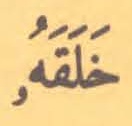 خَلَقَهُۥ